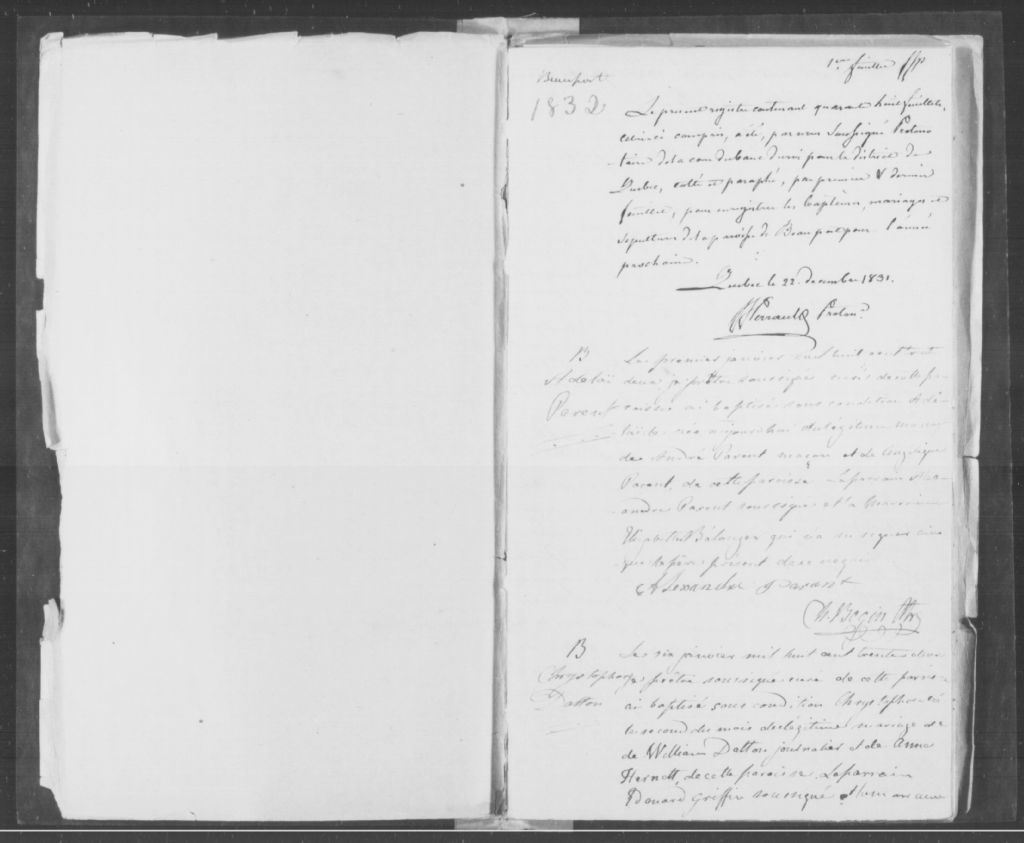 1er feuillet
Beauport
1832
Le present registre contenant quarante huit feuillets,
celui ci compris, a été, par nous soussigné Protono
taire de la cour du banc du roi pour le district de
Québec, cotté et paraphé, par premier & dernier
feuillet, pour enregistrer les baptêmes, mariages et
sepultures de la paroisse de Beauport pour l'année
prochaine.
Quebec le 22 decembre 1831.
Perrault Proton.
B
Adelaï
Parent
Le premier janvier mil huit cent trente
deux je prêtre soussigné curé de cette pa
roisse ai baptisé sous condition Adé-
laïde née aujourd'hui du légitime mariage
de André Parent maçon et de Angélique
Parent, de cette paroisse. Le parrain Alex-
andre Parent soussigné et la marraine
Bélanger qui n'a su signer ainsi
que le père présent de ce requis
Alexandre Parant
Begin Ptre
B
Chrystophore
Dalton
Le six janvier mil huit cent trente deux
je prêtre soussigné curé de cette paroisse
ai baptisé sous condition Chrystophore né
le second du mois du légitime mariage de
de William Dalton journalier et de Anna
de cette paroisse. Le parrain
Edouard Griffin soussigné